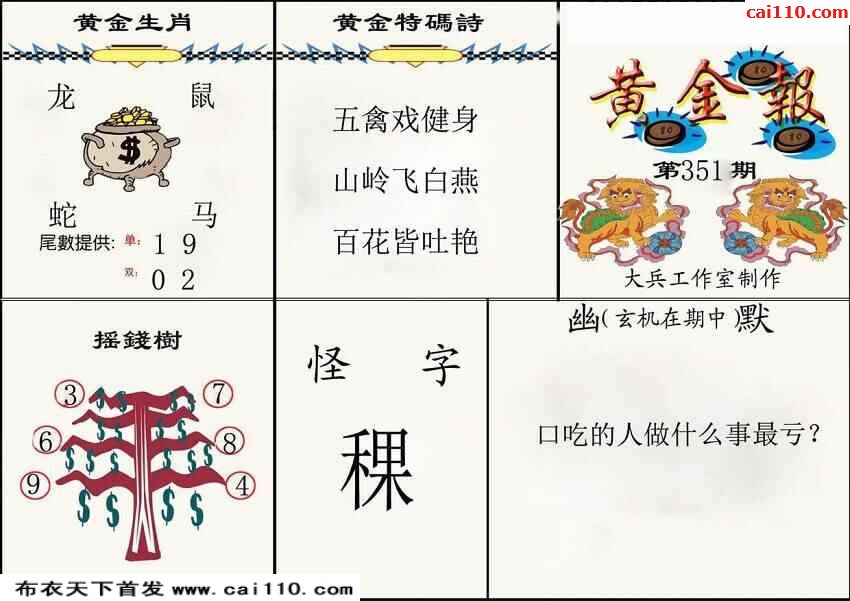 cai110.com
黄金生肖
龙 鼠
$
蛇 马
尾數提供: 单: 1 9
双: 0 2
黄金特碼詩
五禽戏健身
山岭飞白燕
百花皆吐艳
黄金報
第351期
大兵工作室制作
摇錢樹
3 7
6 8
9 4
怪 字
稞
幽(玄机在期中)默
口吃的人做什么事最亏?
布衣天下首发 www.cai110.com